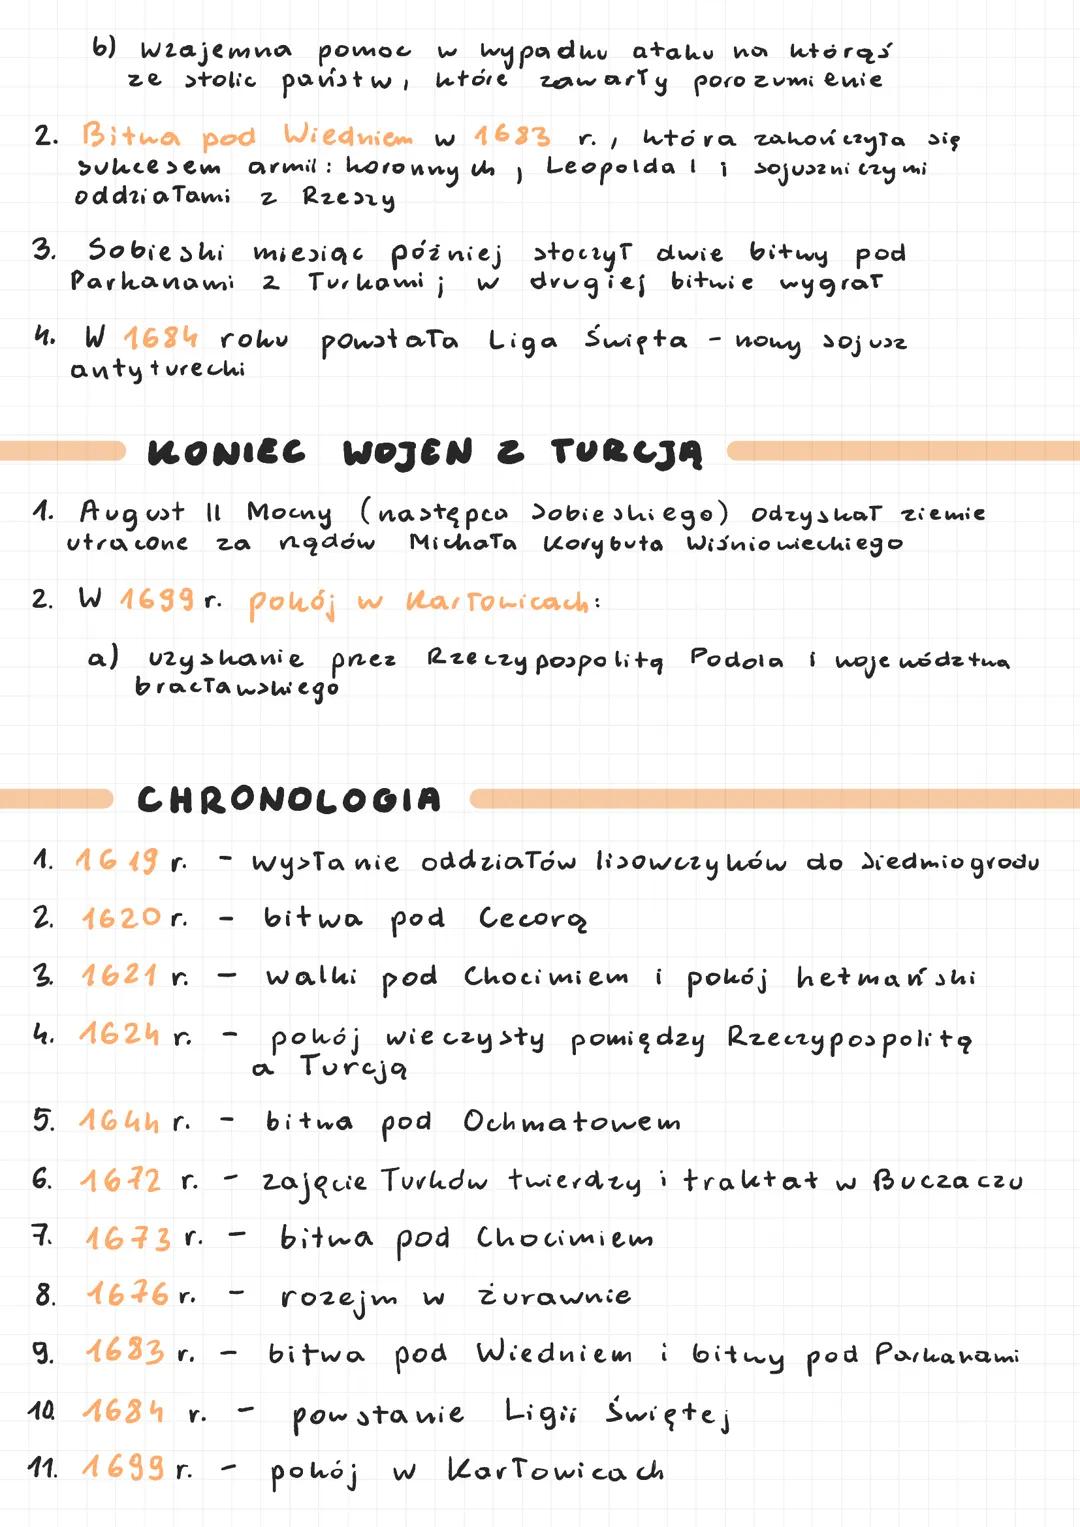 b) wzajemna pomoc w wypadku ataku na którąś
ze stolic państw, które zawarły porozumienie
2. Bitwa pod Wiedniem w 1683 r., która zakończyła się
sukcesem armii: koronnych, Leopolda I i sojuszniczymi
oddziałami z Rzeszy
3. Sobieski miesiąc później stoczył dwie bitwy pod
Parkanami z Turkami; w drugiej bitwie wygrał
4. W 1684 roku powstała Liga Święta - nowy sojusz
antyturecki
KONIEC WOJEN Z TURCJĄ
1. August II Mocny (następca Sobieskiego) odzyskał ziemie
utracone za rządów Michała Korybuta Wiśniowieckiego
2. W 1699 r. pokój w Karłowicach:
a) uzyskanie przez Rzeczypospolitą Podola i województwa
bracławskiego
CHRONOLOGIA
1. 1619 r. - wysłanie oddziałów lisowczyków do Siedmiogrodu
2. 1620 r. - bitwa pod Cecorą
3. 1621 r. - walki pod Chocimiem i pokój hetmański
4. 1624 r. - pokój wieczysty pomiędzy Rzeczypospolitą
a Turcją
5. 1644 r. - bitwa pod Ochmatowem
6. 1672 r. - zajęcie Turków twierdzy i traktat w Buczaczu
7. 1673 r. - bitwa pod Chocimiem
8. 1676 r. - rozejm w Żurawnie
9. 1683 r. - bitwa pod Wiedniem i bitwy pod Parkanami
10. 1684 r. - powstanie Ligii Świętej
11. 1699 r. - pokój w Karłowicach